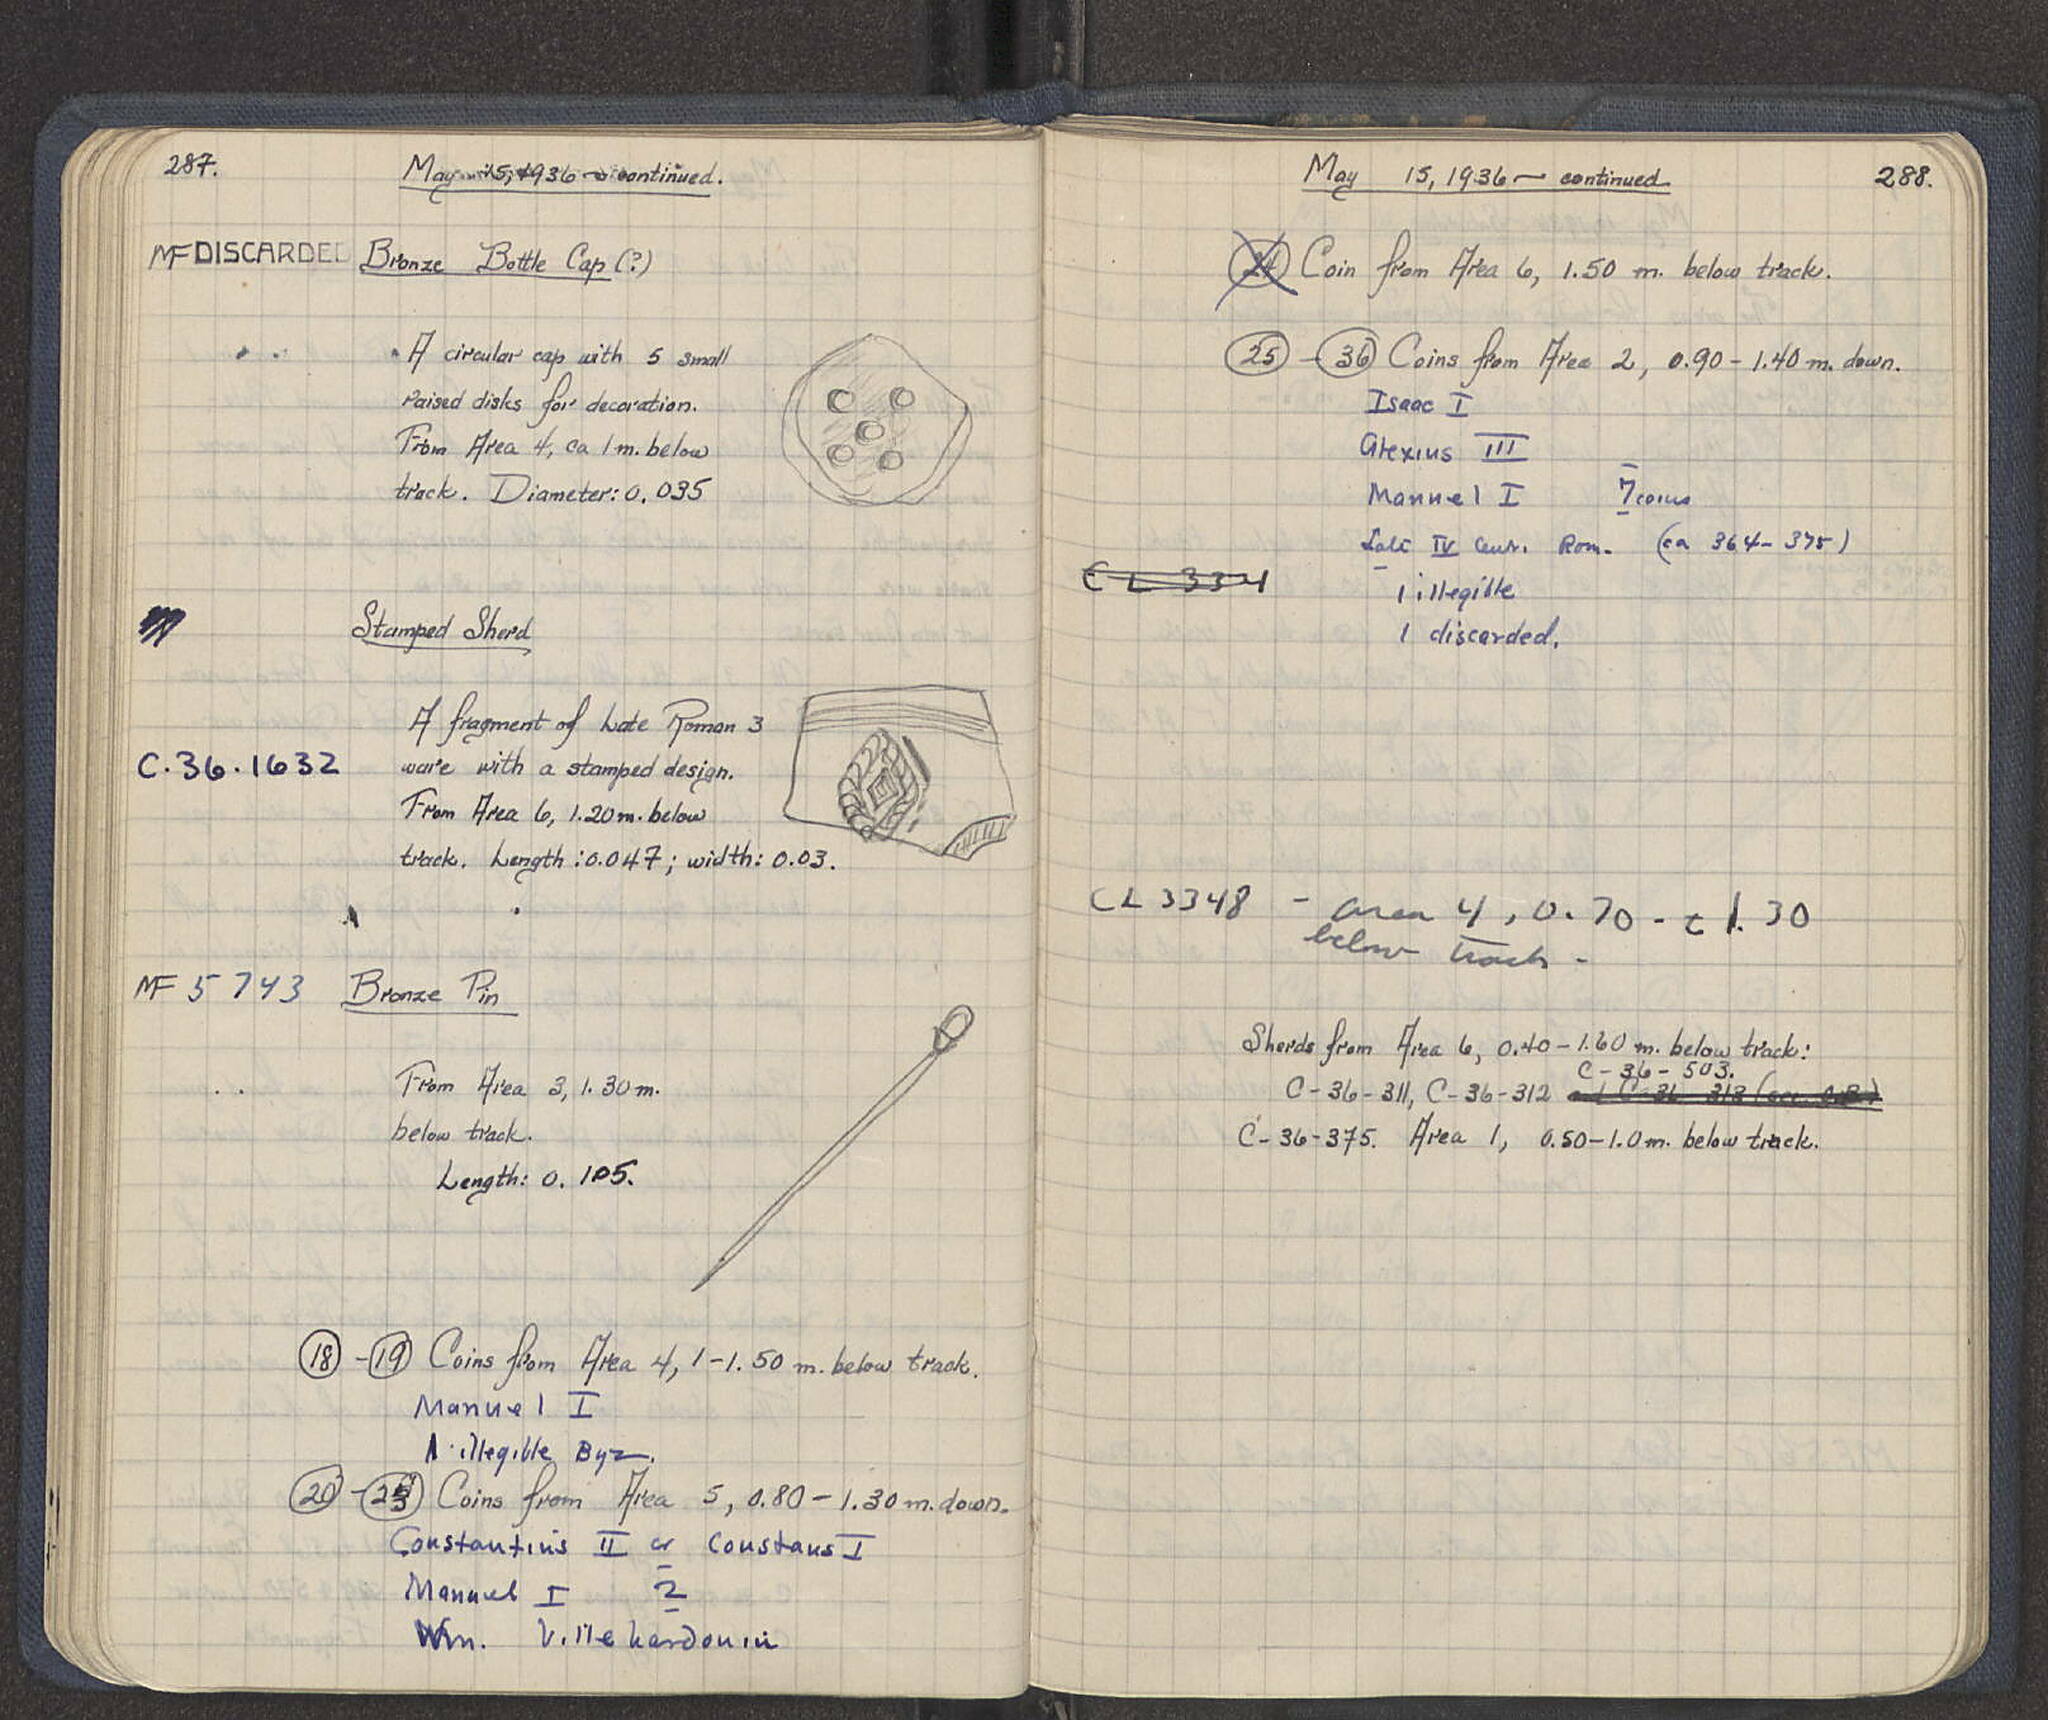 287.
May 15, 1936 — continued.
MF DISCARDED Bronze Bottle Cap (?)
A circular cap with 5 small
raised disks for decoration.
From Area 4, ca 1 m. below
track. Diameter: 0.035
Stamped Sherd
A fragment of Late Roman 3
C.36.1632 ware with a stamped design.
From Area 6, 1.20 m. below
track. Length: 0.047; width: 0.03.
MF 5743 Bronze Pin
From Area 3, 1.30 m.
below track.
Length: 0.105.
18 - 19 Coins from Area 4, 1-1.50 m. below track.
Manuel I
1 illegible Byz.
20 - 23 Coins from Area 5, 0.80-1.30 m. down.
Constantius II or Constans I
Manuel I 2
Wm. Villehardouin
May 15, 1936 — continued 288.
24 Coin from Area 6, 1.50 m. below track.
25 - 36 Coins from Area 2, 0.90-1.40 m. down.
Isaac I
Alexius III
Manuel I 7 coins
Late IV Cent. Rom. (ca 364-375)
CL 3341
1 illegible
1 discarded.
CL 3348 - area 4, 0.70 - 1.30
below track -
Sherds from Area 6, 0.40-1.60 m. below track:
C-36-503.
C-36-311, C-36-312
C-36-375. Area 1, 0.50-1.0 m. below track.